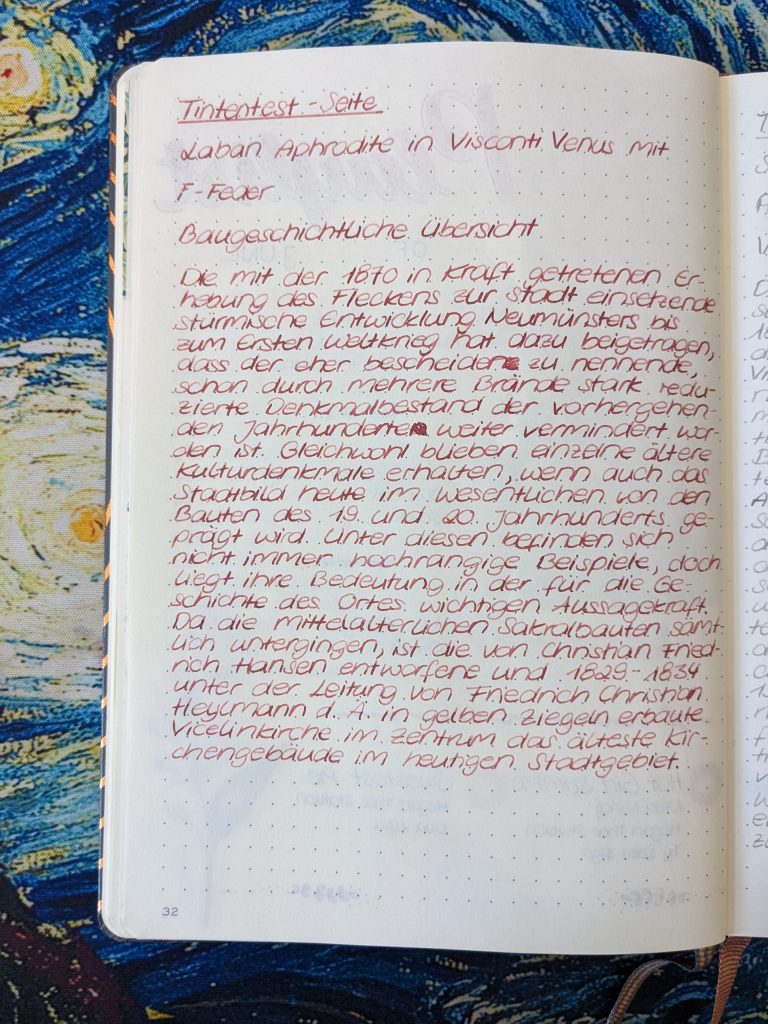 Tintentest-Seite
Laban Aphrodite in Visconti Venus mit
F-Feder
Baugeschichtliche Übersicht
Die mit der 1870 in Kraft getretenen Er-
hebung des Fleckens zur Stadt einsetzende
stürmische Entwicklung Neumünsters bis
zum Ersten Weltkrieg hat dazu beigetragen,
dass der eher bescheiden zu nennende,
schon durch mehrere Brände stark redu-
zierte Denkmalbestand der vorhergehen-
den Jahrhunderte weiter vermindert wor-
den ist. Gleichwohl blieben einzelne ältere
Kulturdenkmale erhalten, wenn auch das
Stadtbild heute im Wesentlichen von den
Bauten des 19. und 20. Jahrhunderts ge-
prägt wird. Unter diesen befinden sich
nicht immer hochrangige Beispiele, doch
liegt ihre Bedeutung in der für die Ge-
schichte des Ortes wichtigen Aussagekraft.
Da die mittelalterlichen Sakralbauten sämt-
lich untergingen, ist die von Christian Fried-
rich Hansen entworfene und 1829-1834
unter der Leitung von Friedrich Christian
Heylmann d. Ä. in gelben Ziegeln erbaute
Vicelinkirche im Zentrum das älteste Kir-
chengebäude im heutigen Stadtgebiet.
32